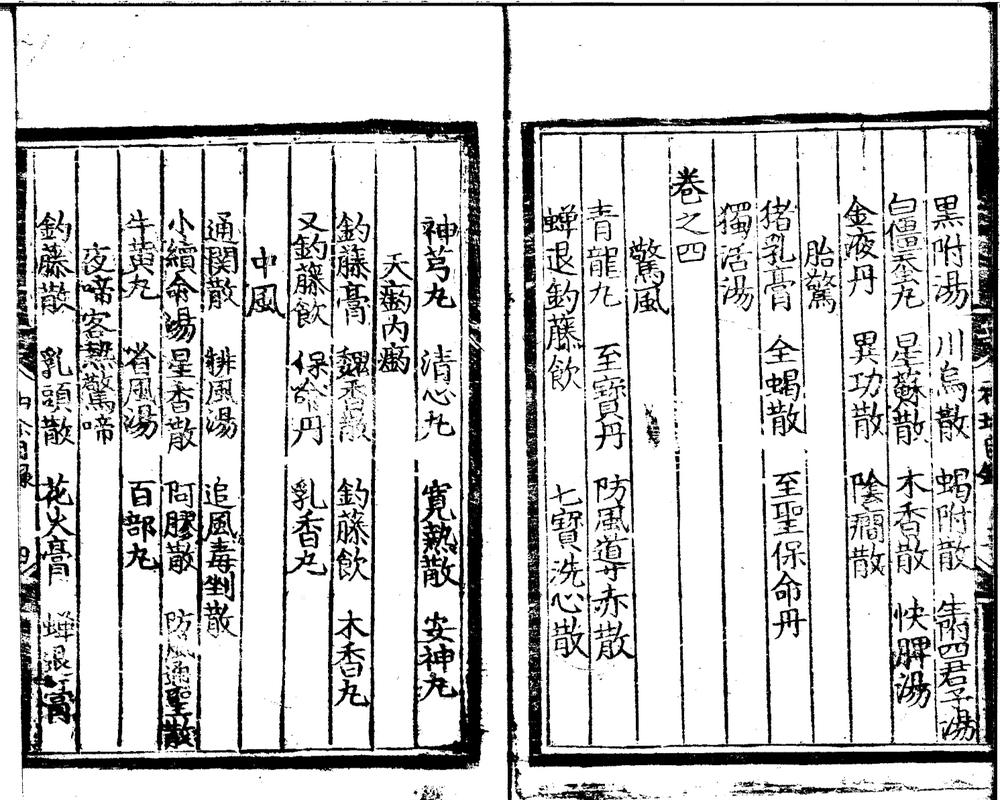 黒附湯 川烏散 蝎附散 生附四君子湯
白僵蚕丸 星蘇散 木香散 快脾湯
金液丹 異功散 陰癇散
胎驚
猪乳膏 全蝎散 至聖保命丹
獨活湯
卷之四
驚風
青龍丸 至寶丹 防風導赤散
蟬退釣藤飲 七寶洗心散
神芎丸 清心丸 寛熱散 安神丸
天釣内癇
釣藤膏 魏香散 釣藤飲 木香丸
又釣藤飲 保命丹 乳香丸
中風
通関散 排風湯 追風毒剉散
小續命湯 星香散 阿膠散 防風通聖散
牛黄丸 省風湯 百部丸
夜啼客熱驚啼
釣藤散 乳頭散 花火膏 蟬退膏